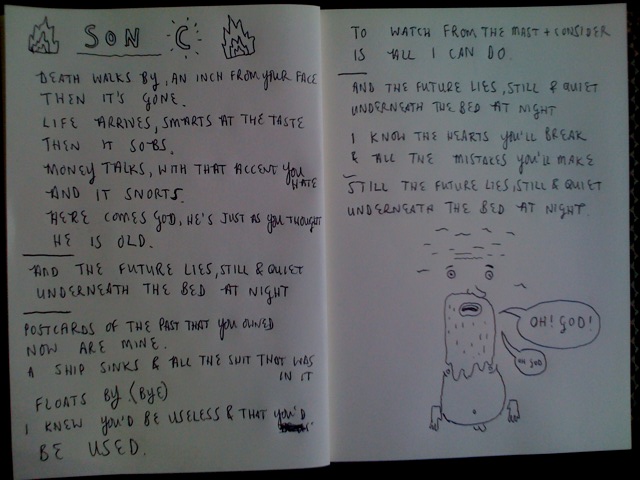 SON C
DEATH WALKS BY, AN INCH FROM YOUR FACE
THEN IT'S GONE.
LIFE ARRIVES, SMARTS AT THE TASTE
THEN IT SOBS.
MONEY TALKS, WITH THAT ACCENT YOU
HATE
AND IT SNORTS.
HERE COMES GOD, HE'S JUST AS YOU THOUGHT
HE IS OLD.
AND THE FUTURE LIES, STILL & QUIET
UNDERNEATH THE BED AT NIGHT
POSTCARDS OF THE PAST THAT YOU OWNED
NOW ARE MINE.
A SHIP SINKS & ALL THE SHIT THAT WAS
IN IT
FLOATS BY. (BYE)
I KNEW YOU'D BE USELESS & THAT YOU'D
BE USED.
TO WATCH FROM THE MAST + CONSIDER
IS ALL I CAN DO.
AND THE FUTURE LIES, STILL & QUIET
UNDERNEATH THE BED AT NIGHT
I KNOW THE HEARTS YOU'LL BREAK
& ALL THE MISTAKES YOU'LL MAKE
STILL THE FUTURE LIES, STILL & QUIET
UNDERNEATH THE BED AT NIGHT.
OH! GOD!
OH GOD